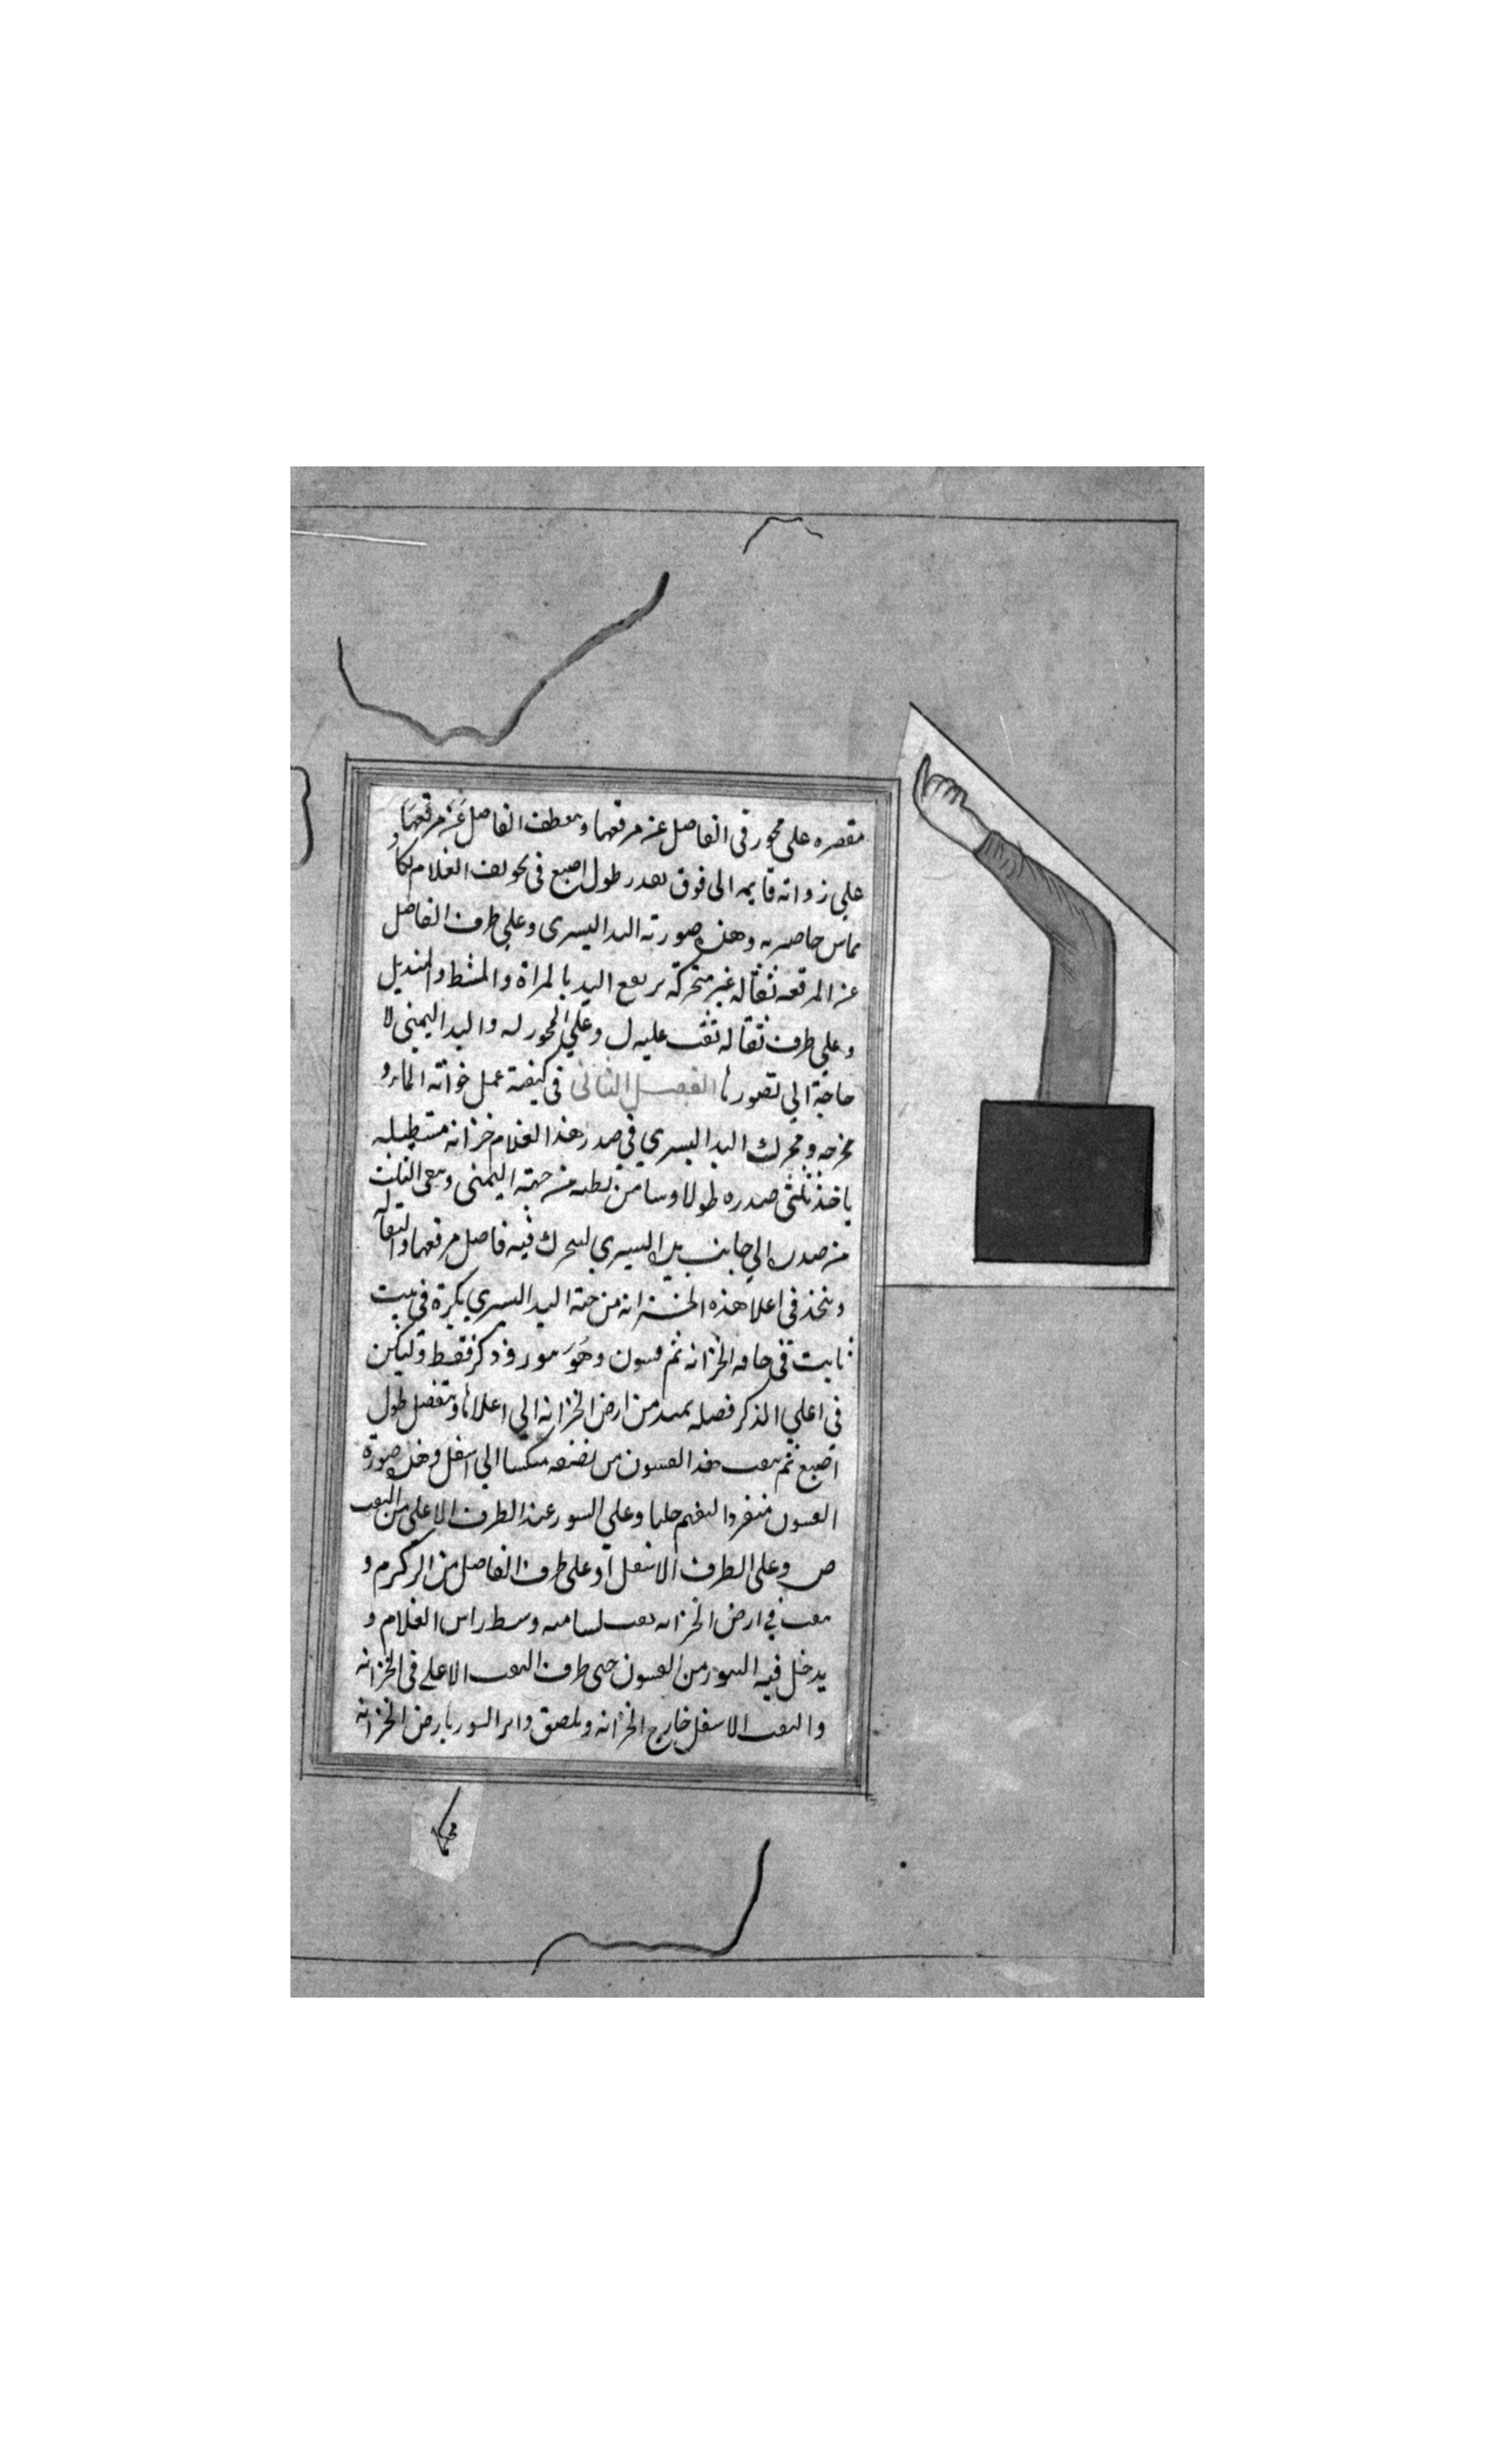 مقصره على محور فى الفاصل عن مرفقها و معطف الفاصل عن مرفقها
على زواته قايمه الى فوق بقدر طول اصبع فى تجويف الغلام لكا
يماس خاصرته وهذه صورته اليد اليسرى وعلى طرف الفاصل
عن المرفقه ثقاله غير متحركة يرفع اليد بالمراة والمشط والمنديل
وعلى طرف ثقاله ثقب عليه ل وعلى المحور له واليد اليمنى لا
حاجة الى تصورها الفصل الثانى فى كيفية عمل خزانة الماء و
مخرجه ومحرك اليد اليسرى فى صدر هذا الغلام خزانه مستطيله
ياخذ ثلثى صدره طولا وسامن بطنه من جهة اليمنى وبقى الثلث
من صدره الى جانب يده اليسرى ليتحرك فيه فاصل مرفقها والثقاله
ويتخذ فى اعلا هذه الخزانه من جهة اليد اليسرى بكرة فى بيت
ثابت فى حافه الخزانه ثم فسون وهو سور وذكر فقط وليكن
فى اعلى الذكر فصله يمتد من ارض الخزانه الى اعلاها ويتفضل طول
اصبع ثم يثقب هذا الفسون من نصفه منكسا الى اسفل وهذه صورة
الفسون منفردا ليفهم جليا وعلى السور عند الطرف الاعلى من الثقب
ص وعلى الطرف الاسفل ا وعلى طرف الفاصل من الذكر م و
يثقب فى ارض الخزانه ثقب لسامته وسط راس الغلام و
يدخل فيه السور من الفسون حتى طرف الثقب الاعلى فى الخزانه
والثقب الاسفل خارج الخزانه ويلصق داير السور بارض الخزانه